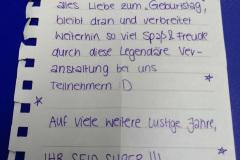 alles Liebe zum „Geburtstag",
bleibt dran und verbreitet
weiterhin so viel Spaß & Freude
durch diese Legendäre Ver-
anstaltung bei uns
Teilnehmern :D
Auf viele weitere lustige Jahre,
IHR SEID SUPER !!!